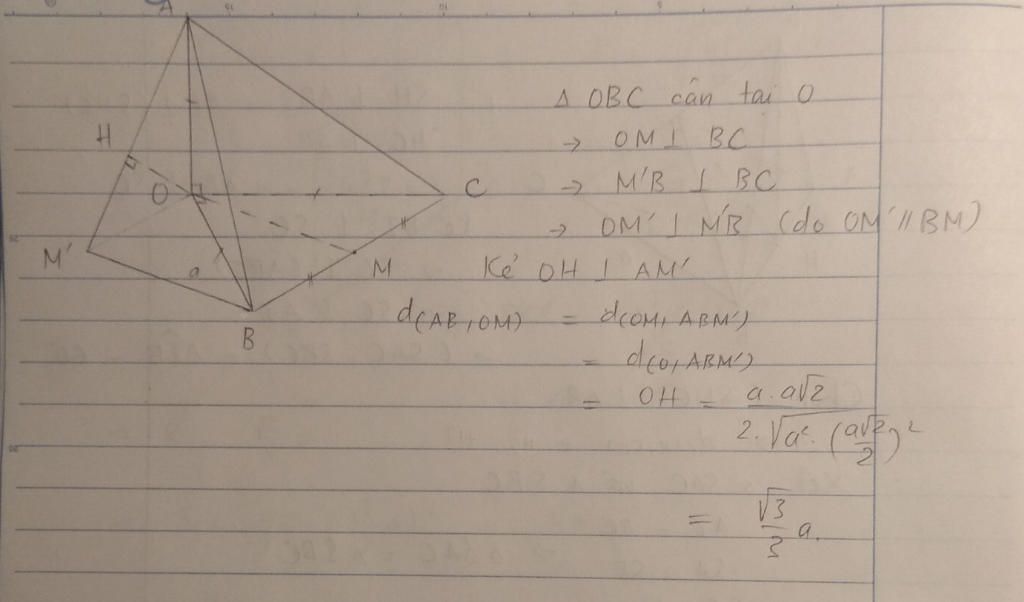 A
H
O
C
M'
a
M
B
Δ OBC cân tại O
→ OM ⊥ BC
→ M'B ⊥ BC
→ OM' ⊥ M'B (do OM' // BM)
Kẻ OH ⊥ AM'
d(AB, OM) = d(OM, ABM')
= d(O, ABM')
= OH = a.a√2 / 2.√a². (a√2/2)²
= √3/3 a.